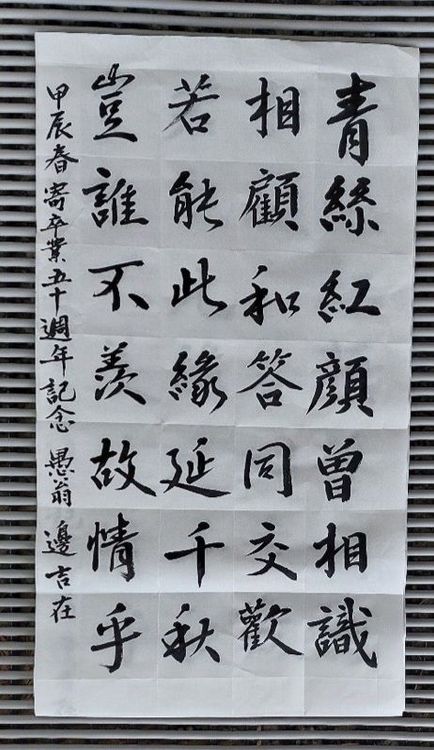 青絲紅顔曾相識
相顧和答同交歡
若能此緣延千秋
豈誰不羨故情乎
甲辰春寄卒業五十週年記念 愚翁 邊吉在